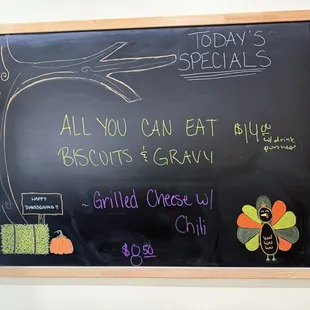 TODAY'S
SPECIALS
ALL YOU CAN EAT $14.00
w/ drink
purchase
BISCUITS & GRAVY
~Grilled Cheese w/
Chili
$8.50
HAPPY
THANKSGIVING!!